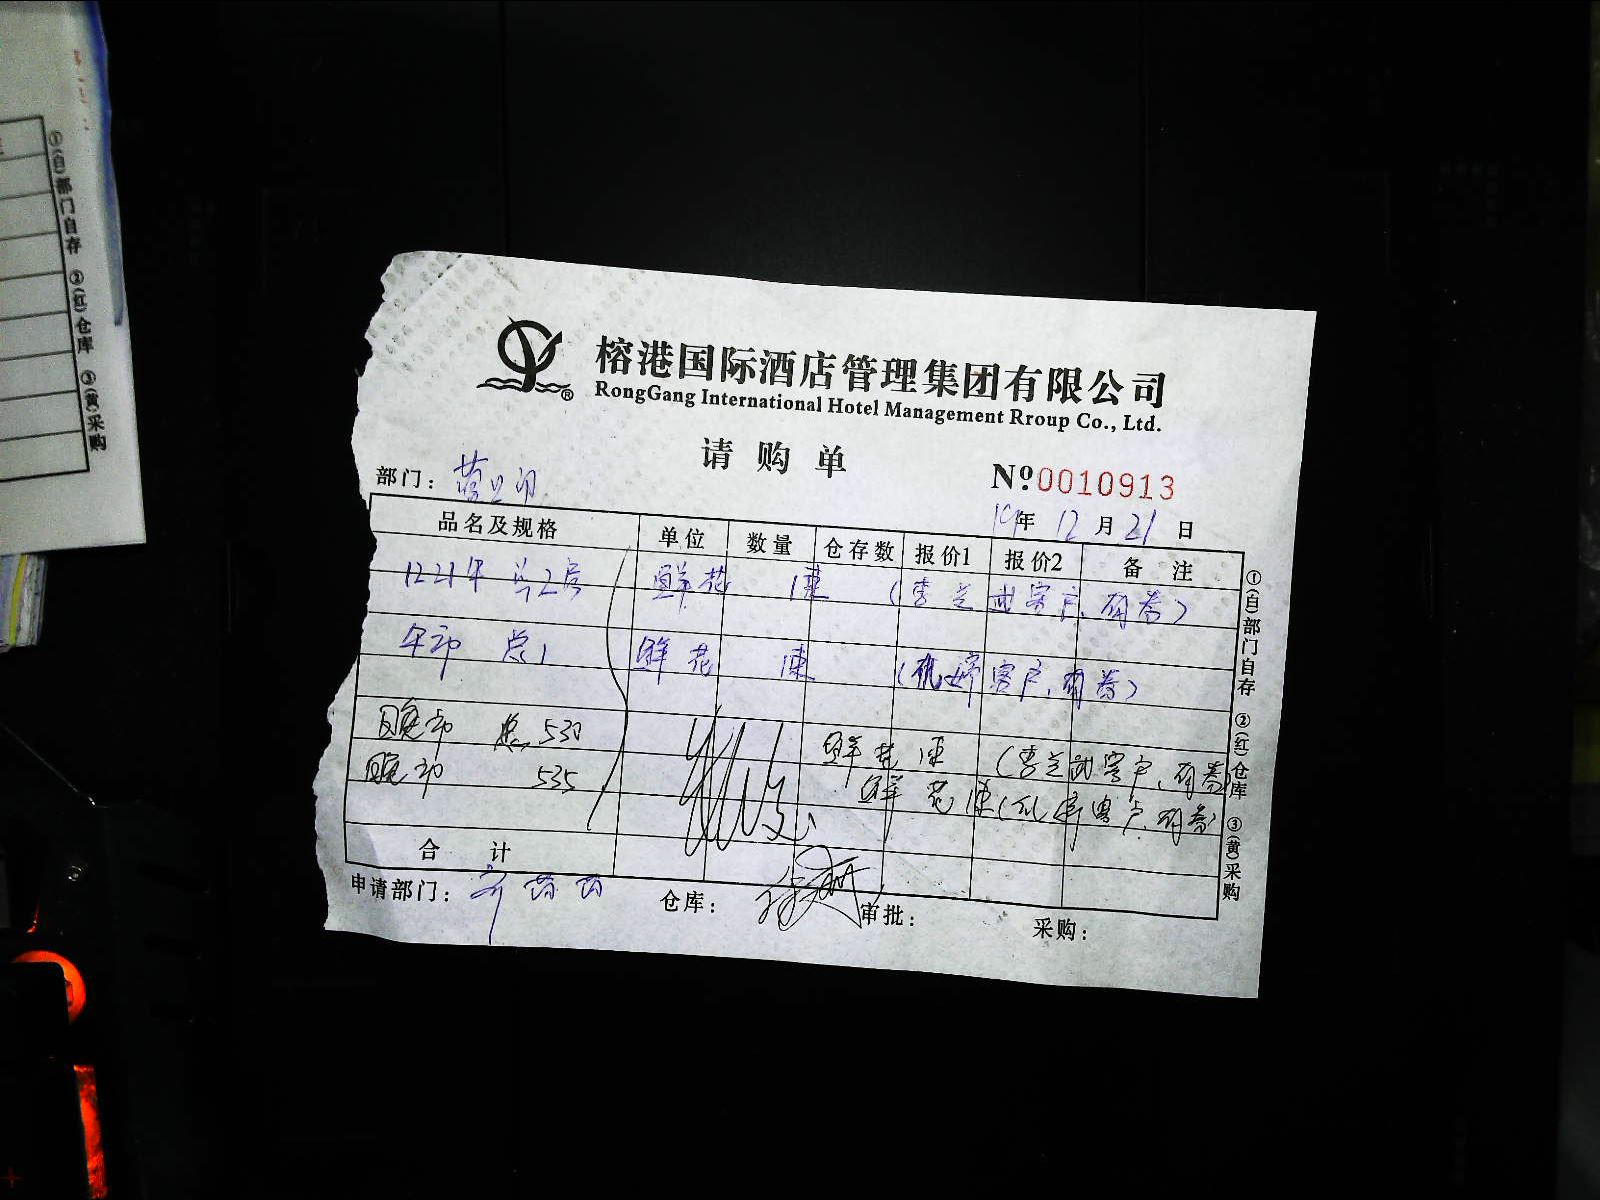 ①(白)部门自存 ②(红)仓库 ③(黄)采购
榕港国际酒店管理集团有限公司
RongGang International Hotel Management Rroup Co., Ltd.
请购单
№ 0010913
部门：营业部
19年 12月 21日
品名及规格 单位 数量 仓存数 报价1 报价2 备注
鲜花 1束 (李兰武客户,有券)
午市 总1 鲜花 1束 客户,有券)
晚市 总530 鲜花 1束 (李兰武客户,有券)
晚市 535 鲜花 1束 客户,有券)
合计
申请部门： 仓库： 审批： 采购：
①(白)部门自存 ②(红)仓库 ③(黄)采购